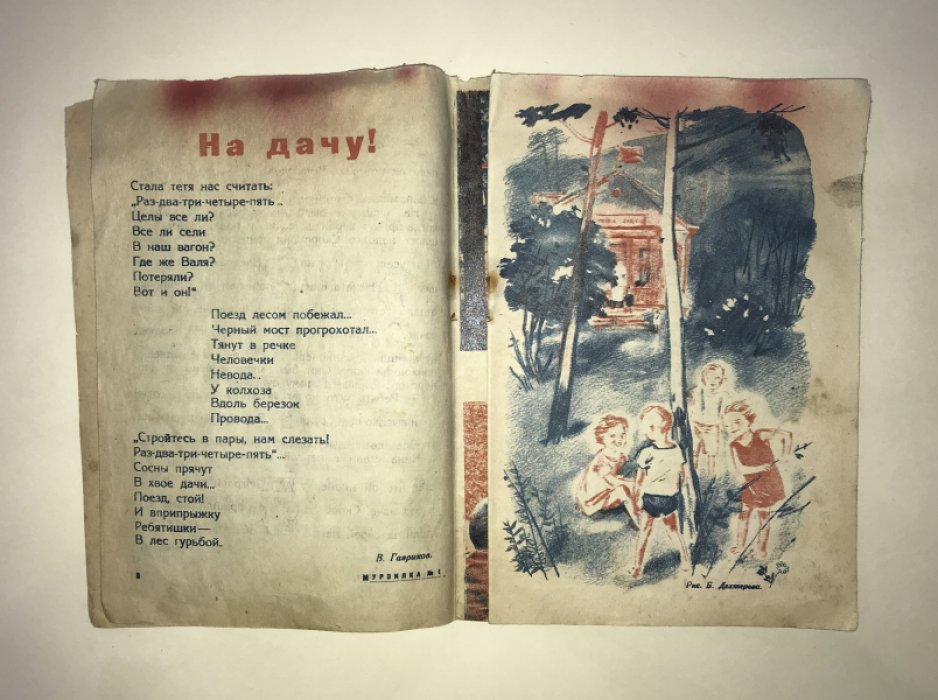 На дачу!
Стала тетя нас считать:
„Раз-два-три-четыре-пять..
Целы все ли?
Все ли сели
В наш вагон?
Где же Валя?
Потеряли?
Вот и он!“
Поезд лесом побежал...
Черный мост прогрохотал...
Тянут в речке
Человечки
Невода...
У колхоза
Вдоль березок
Провода...
„Стройтесь в пары, нам слезать!
Раз-два-три-четыре-пять“...
Сосны прячут
В хвое дачи...
Поезд, стой!
И вприпрыжку
Ребятишки—
В лес гурьбой.
В. Гавриков.
8
МУРЗИЛКА №
Рис. Б. Дехтерева.